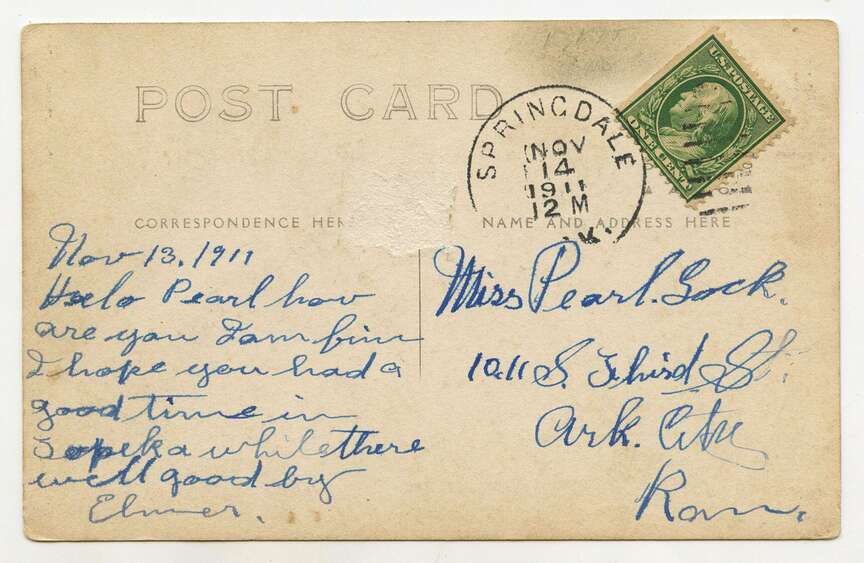 POST CARD
U.S. POSTAGE
ONE CENT
SPRINGDALE
NOV
14
1911
12 M
CORRESPONDENCE HER
NAME AND ADDRESS HERE
Nov 13, 1911
Hello Pearl how
are you I am fine
I hope you had a
good time in
Topeka while there
well good by
Elmer.
Miss Pearl. Gock.
1011 S. Third St.
Ark. City
Kan.